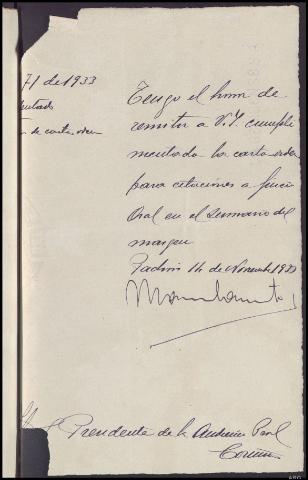 71 de 1933
de carta orden
Tengo el honor de
remitir a V.I. cumpli
mentada la carta orden
para citaciones a juicio
Oral en el sumario del
margen
14 de Novembre 1933
Sr Presidente de la Audiencia Prol
Coruña